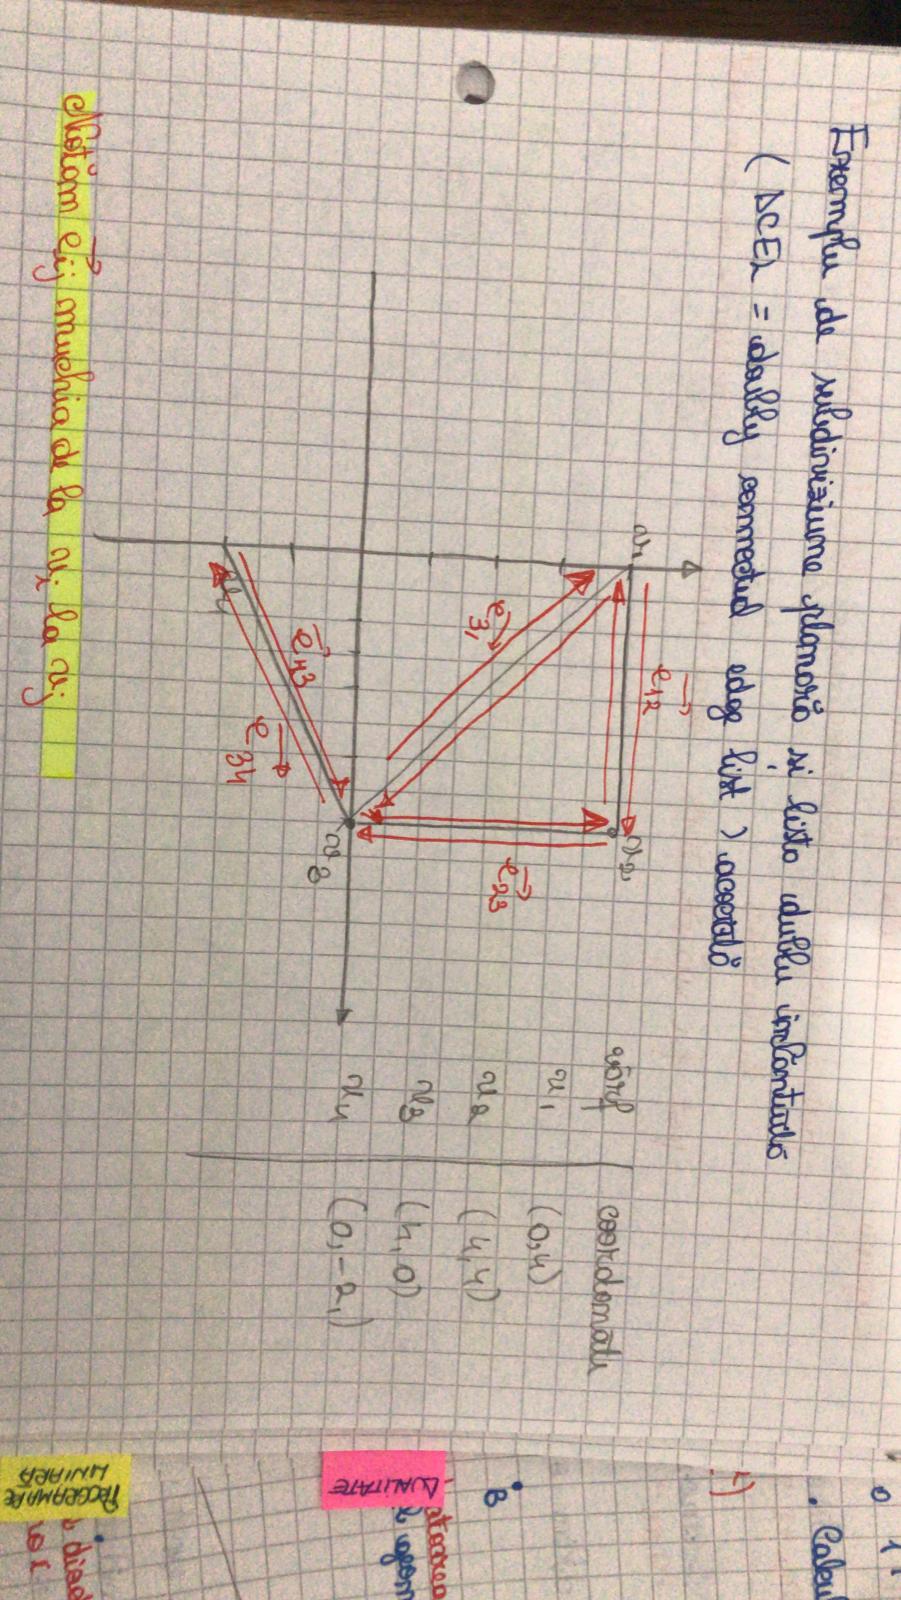 Exemplu de subdiviziune planară și listă dublu înlănțuită
(DCEL = doubly connected edge list) asociată
e12
v1
v2
e23
e31
v3
e43
e34
v4
vârf coordonate
v1 (0,4)
v2 (4,4)
v3 (4,0)
v4 (0,-2)
Notăm eij muchia de la vi la vj
0 1
Calcul
B
DUALITATE
PROGRAMARE
LINIARĂ